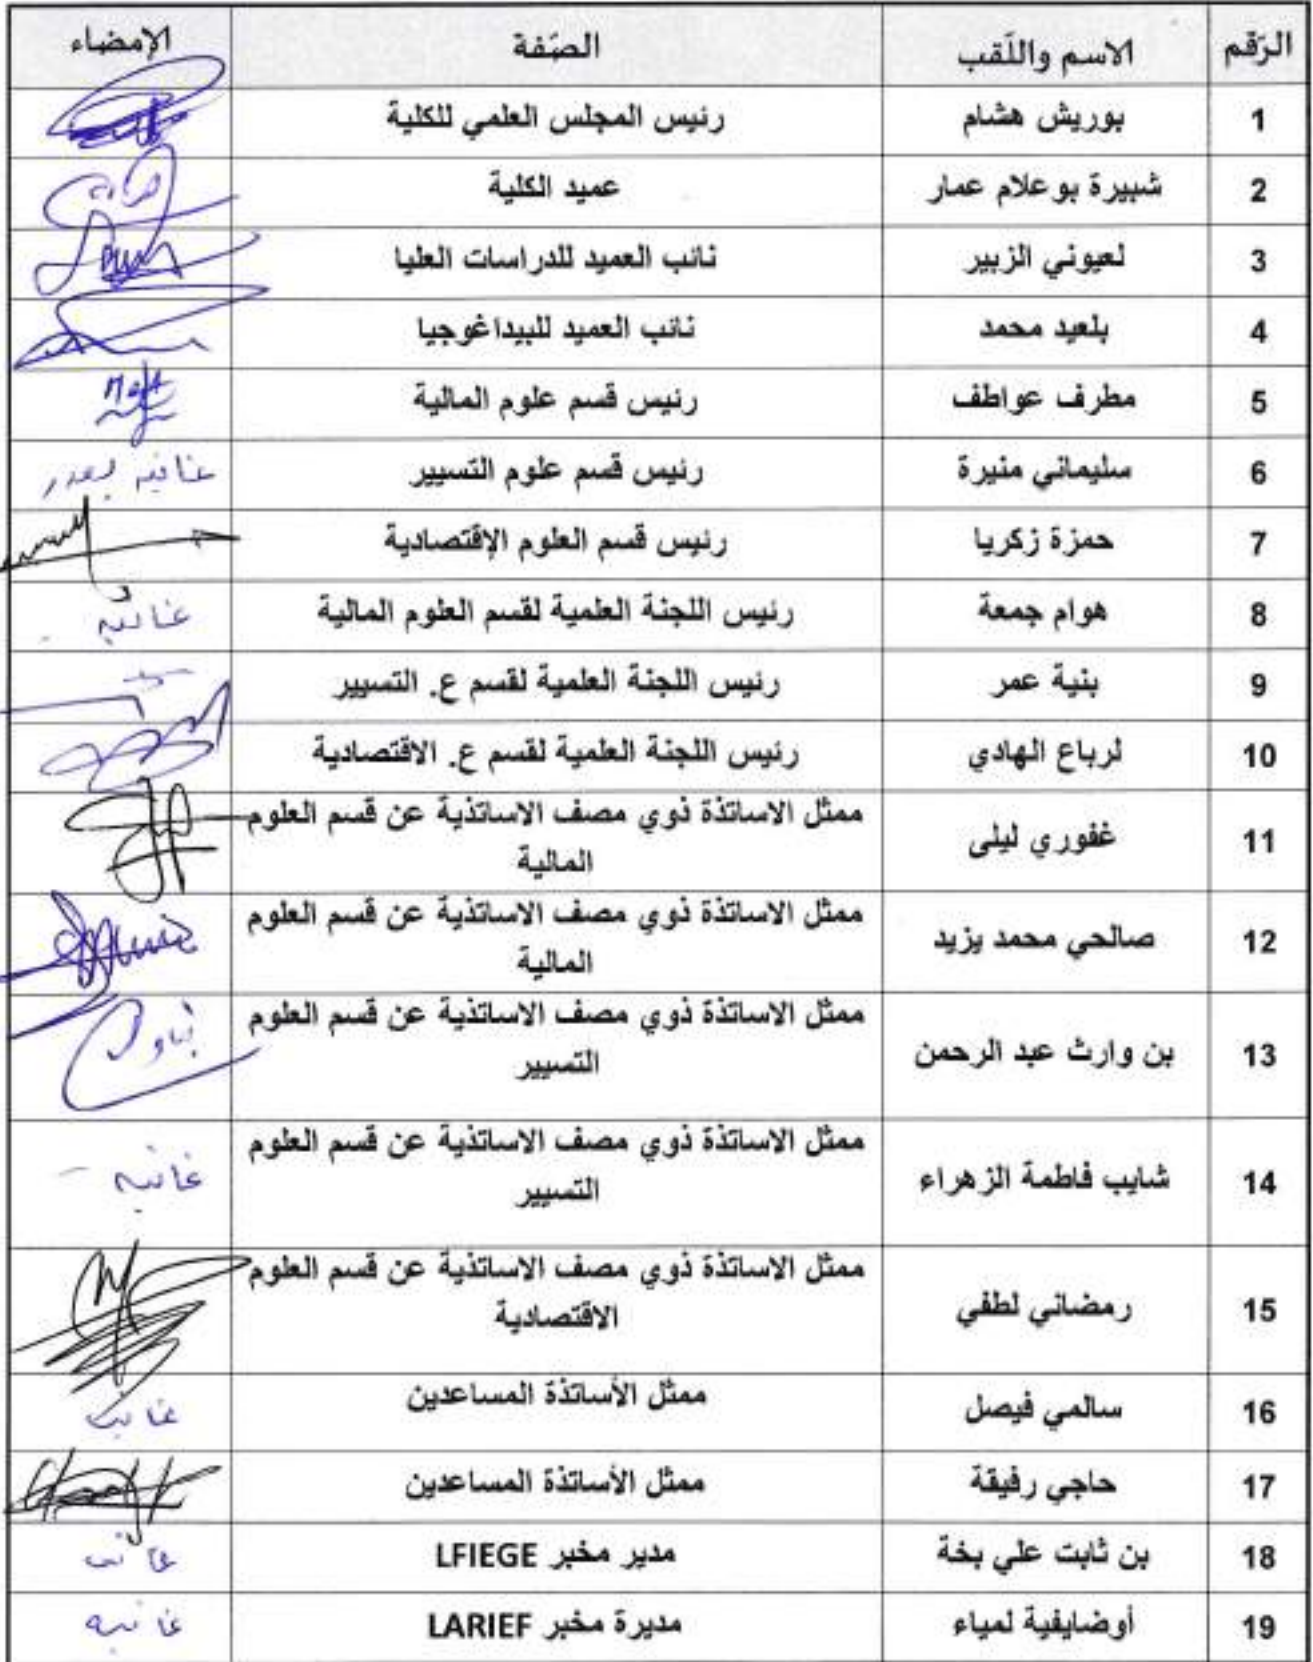 الرّقم الاسم واللّقب الصّفة الإمضاء
1 بوريش هشام رئيس المجلس العلمي للكلية
2 شبيرة بوعلام عمار عميد الكلية
3 لعيوني الزبير نائب العميد للدراسات العليا
4 بلعيد محمد نائب العميد للبيداغوجيا
5 مطرف عواطف رئيس قسم علوم المالية
6 سليماني منيرة رئيس قسم علوم التسيير غائبة
7 حمزة زكريا رئيس قسم العلوم الإقتصادية
8 هوام جمعة رئيس اللجنة العلمية لقسم العلوم المالية غائبة
9 بنية عمر رئيس اللجنة العلمية لقسم ع. التسيير
10 لرباع الهادي رئيس اللجنة العلمية لقسم ع. الاقتصادية
11 غفوري ليلى ممثل الاساتذة ذوي مصف الاساتذية عن قسم العلوم
المالية
12 صالحي محمد يزيد ممثل الاساتذة ذوي مصف الاساتذية عن قسم العلوم
المالية
13 بن وارث عبد الرحمن ممثل الاساتذة ذوي مصف الاساتذية عن قسم العلوم
التسيير
14 شايب فاطمة الزهراء ممثل الاساتذة ذوي مصف الاساتذية عن قسم العلوم غائبة
التسيير
15 رمضاني لطفي ممثل الاساتذة ذوي مصف الاساتذية عن قسم العلوم
الاقتصادية
16 سالمي فيصل ممثل الأساتذة المساعدين غائب
17 حاجي رفيقة ممثل الأساتذة المساعدين
18 بن ثابت علي بخة مدير مخبر LFIEGE غائب
19 أوضايفية لمياء مديرة مخبر LARIEF غائبة